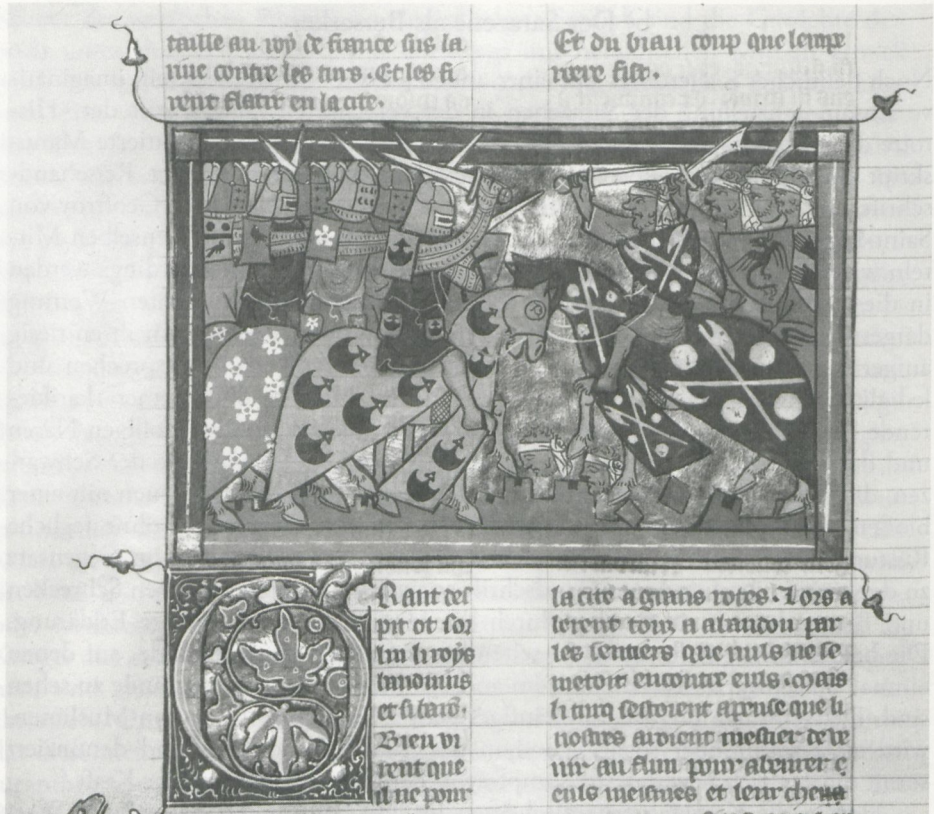 taille au roy de france sus la
riue contre les turs. Et les fi
rent flatir en la cite.
Et du biau coup que lempe
riere fist.
Rant tel
pit ot sor
lui li roys
et si baro.
Bien vi
rent que
il ne pour
la cite a grans rotes. Lors a
lerent touz a abandon par
les sentiers que nuls ne se
metoit encontre euls. mais
li turq sestoient apense que li
nostres auoient mestier de ve
nir au flun pour abeurer e
euls meismes et leur cheua